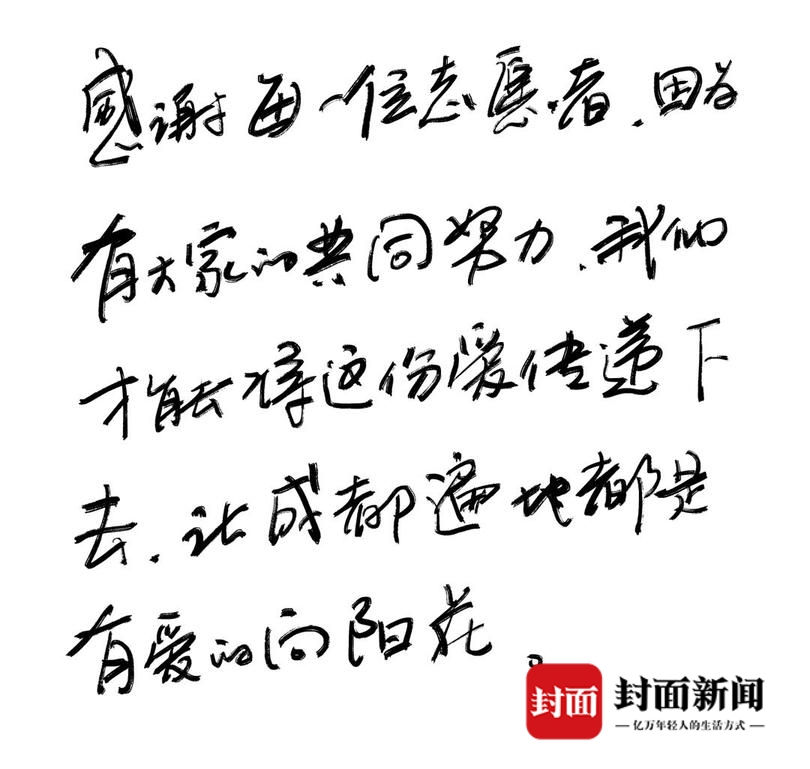 感谢每一位志愿者.因为
有大家的共同努力.我们
才能将这份爱传递下
去.让成都遍地都是
有爱的向阳花。
封面
封面新闻
亿万年轻人的生活方式